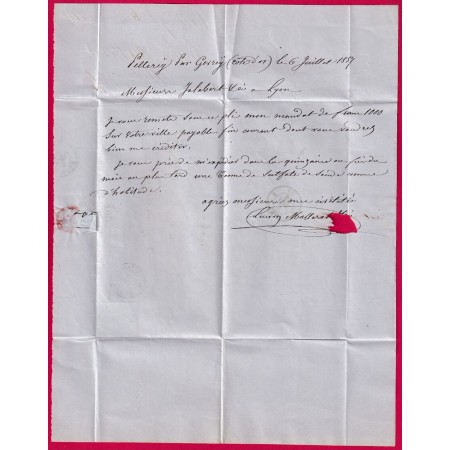 Pellerey Par Gevrey (Côte d'or) le 6 Juillet 1857
Messieurs Jalabert & Cie a Lyon
Je vous remets sous ce pli mon mandat de francs 1000
Sur votre ville payable fin courant dont vous voudrez
bien me créditer.
Je vous prie de m'expédier dans la quinzaine ou fin du
mois au plus tard une Tonne de Sulfate de Soude comme
d'habitude.
agréez messieurs mes civilités